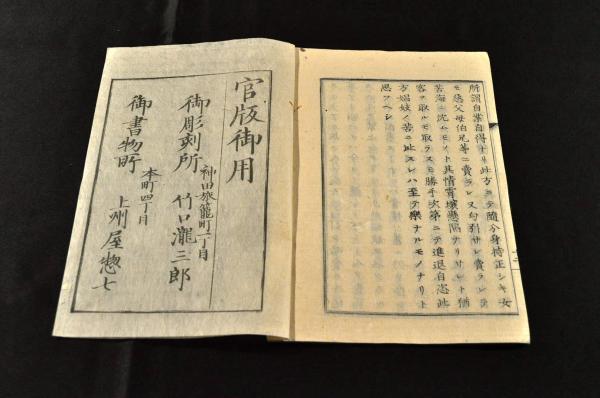 所謂自業自得ナリ此方ニテ隨分身持正シキ女
モ慈父母伯兄等ニ賣ラレ又勾引サレ賣ラレテ
苦海ニ沈ムモノト其情霄壤懸隔ナリサレト猶
客ヲ取ルモ取ラヌモ勝手次第ニテ進退自恣此
方娼妓ノ苦ニ比スレハ至テ樂ナルモノナリト
思フヘシ
官版御用
御彫刻所
神田旅籠町二丁目
竹口瀧三郎
御書物所
本町四丁目
上州屋惣七